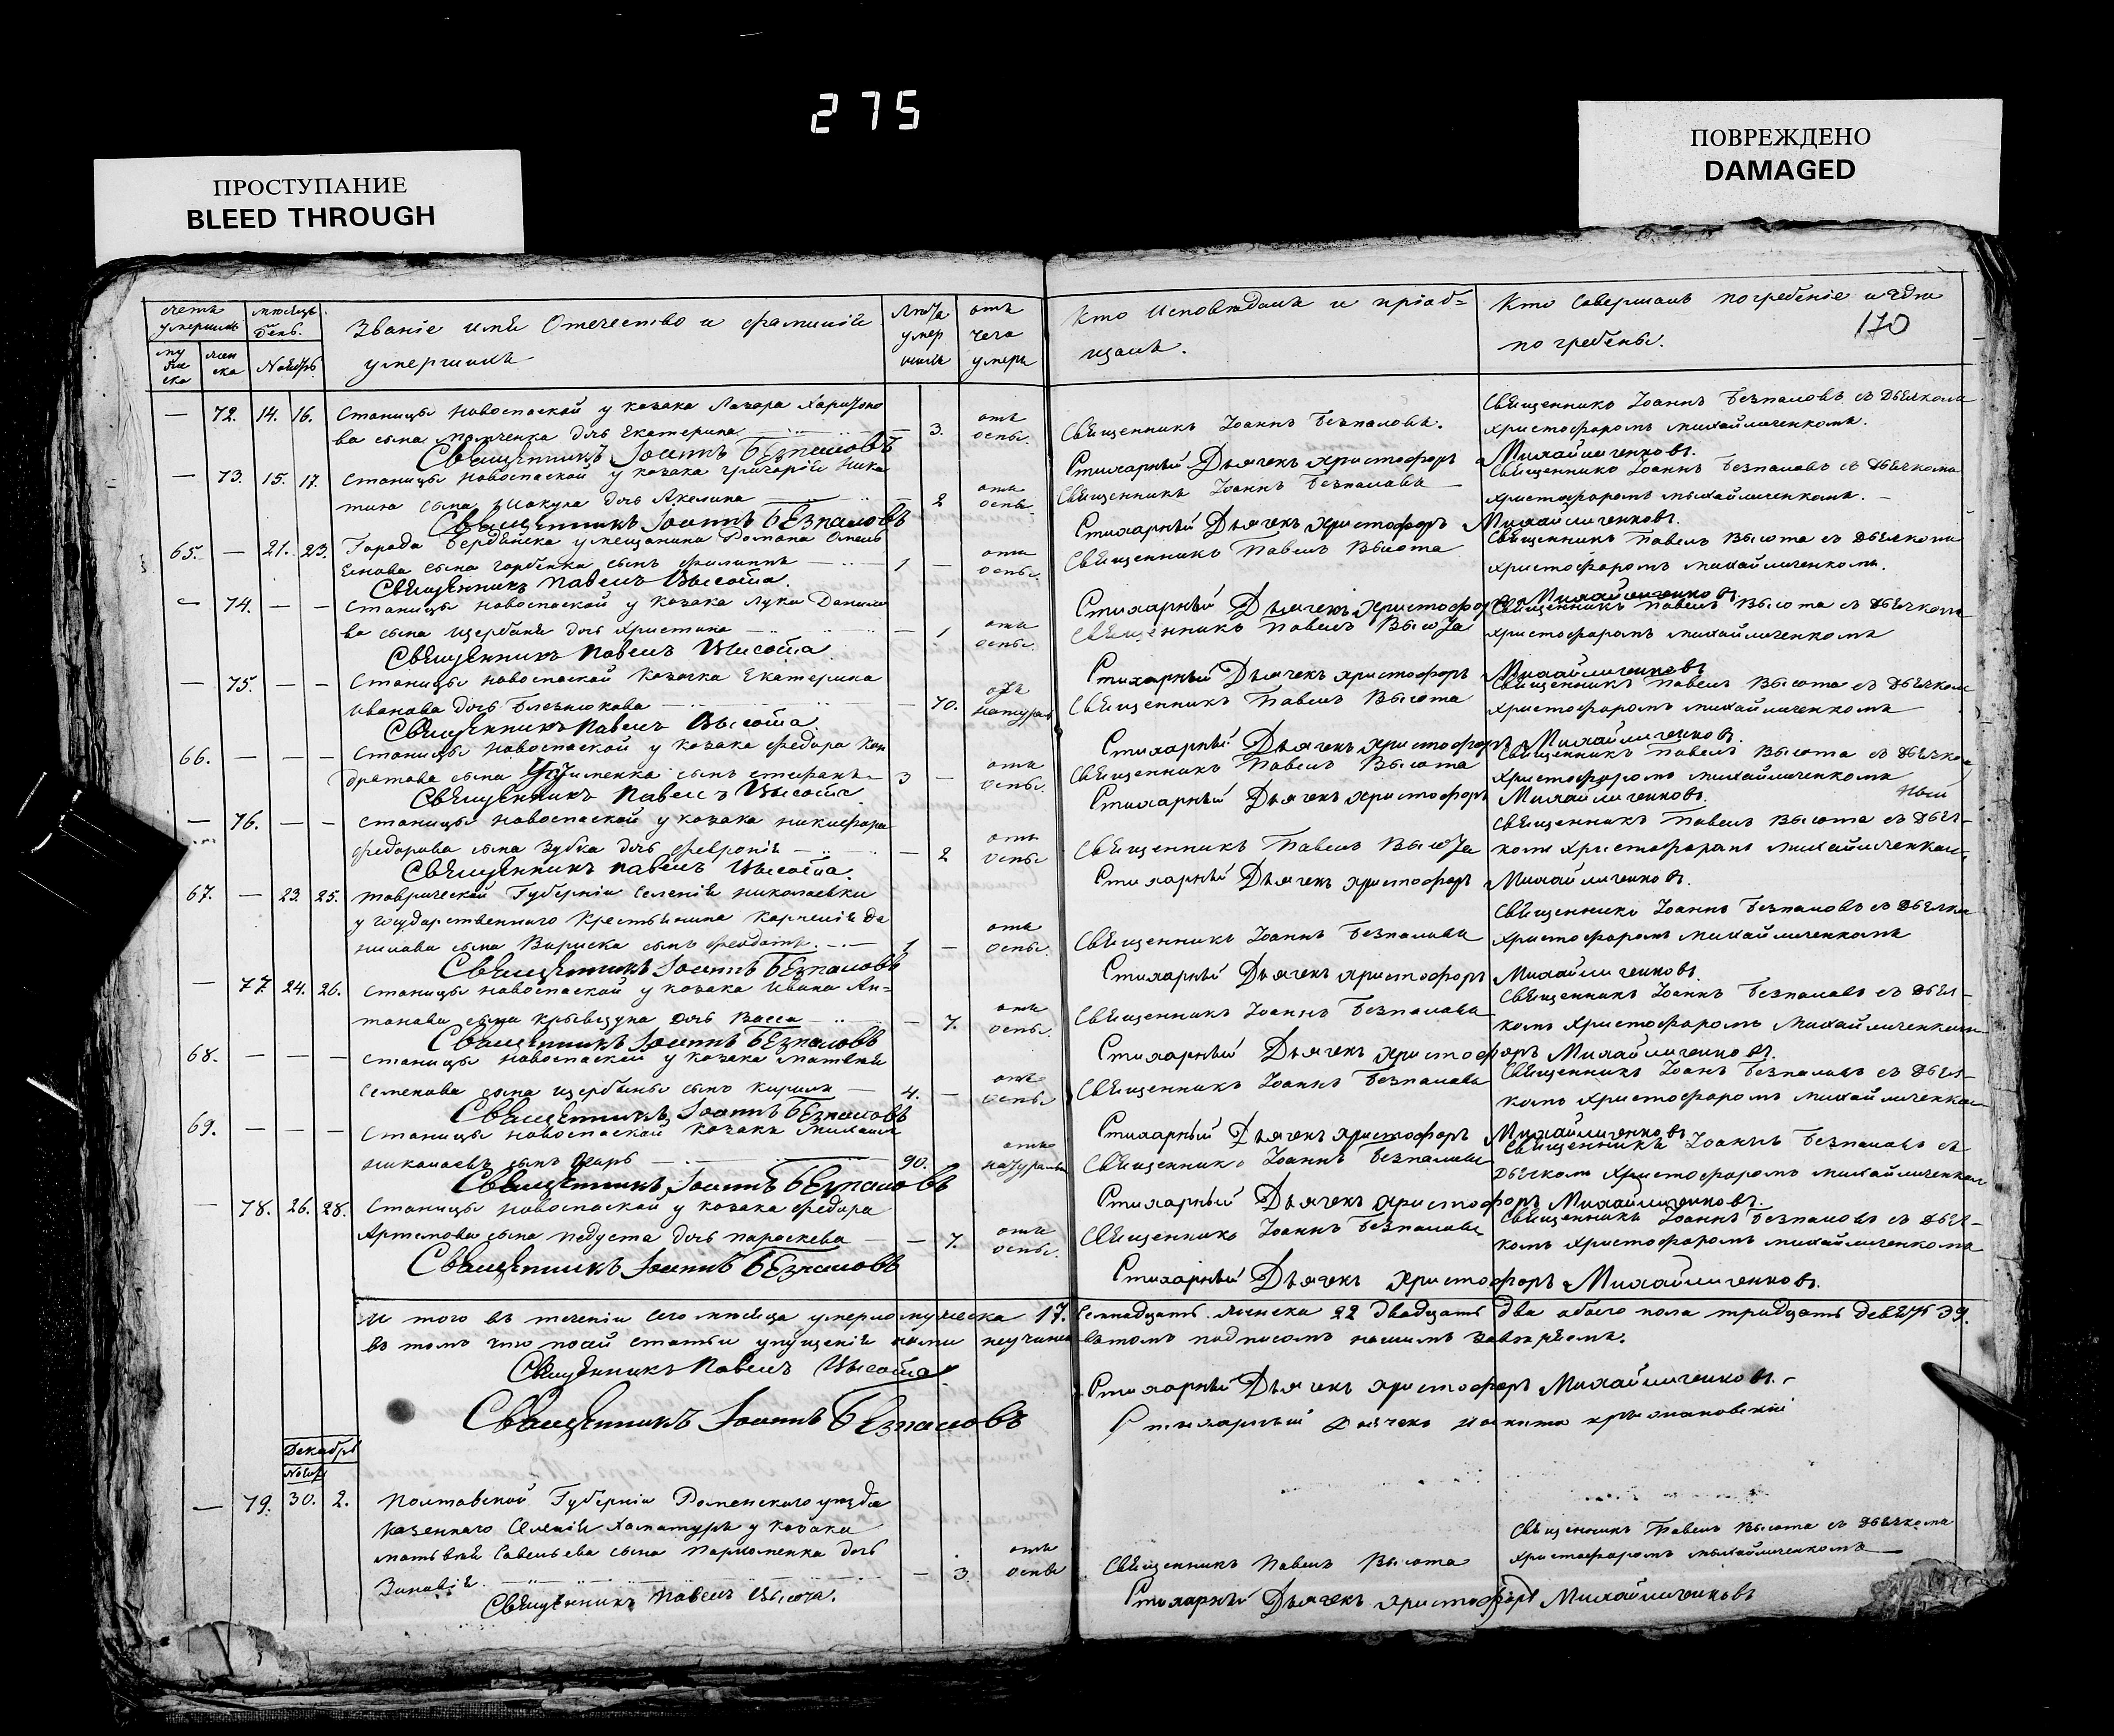 275
ПРОСТУПАНИЕ
BLEED THROUGH
ПОВРЕЖДЕНО
DAMAGED
170
счетъ умершихъ
мужеска
женска
месяцъ день.
Ноябрь.
Званіе имя Отечество и фамилія
умершихъ
Лѣта умершихъ
отъ чего умеръ
Кто Исповѣдалъ и пріоб-
щалъ.
Кто Совершалъ погребеніе и гдѣ
погребены.
— 72. 14. 16. Станицы Новоспаской у козака Лазара Харитоно
ва сына дочь Екатерина — 3. отъ оспы. Священникъ Іоаннъ Безпаловъ. Священникъ Іоаннъ Безпаловъ съ Дьячкомъ Христофоромъ Михайличенкомъ.
Священникъ Іоаннъ Безпаловъ
Стихарный Дьячекъ Христофоръ Михайличенковъ.
— 73. 15. 17. Станицы Новоспаской у козака Григорія Ники
тина сына Шакула дочь Акелина — 2 отъ оспы. Священникъ Іоаннъ Безпаловъ — Священникъ Іоаннъ Безпаловъ съ Дьячкомъ Христофоромъ Михайличенкомъ. —
Священникъ Іоаннъ Безпаловъ
Стихарный Дьячекъ Христофоръ Михайличенковъ.
65. — 21. 23. Города Бердянска у мещанина Романа Омель
янова сына Горбенка сынъ Филиппъ — 1 — отъ оспы. Священникъ Павелъ Высота Священникъ Павелъ Высота съ Дьячкомъ Христофоромъ Михайличенкомъ.
Священникъ Павелъ Высота.
Стихарный Дьячекъ Христофоръ Михайличенковъ.
— 74. — — Станицы Новоспаской у козака Луки Данило
ва сына Щербани дочь Христина — 1 отъ оспы. Священникъ Павелъ Высота Священникъ Павелъ Высота съ Дьячкомъ Христофоромъ Михайличенкомъ
Священникъ Павелъ Высота.
Стихарный Дьячекъ Христофоръ Михайличенковъ
— 75. — — Станицы Новоспаской Козачка Екатерина
Иванова дочь — 70. отъ натуры Священникъ Павелъ Высота Священникъ Павелъ Высота съ Дьячкомъ Христофоромъ Михайличенкомъ
Священникъ Павелъ Высота
Стихарный Дьячекъ Христофоръ Михайличенковъ.
66. — — — Станицы Новоспаской у козака Федора Кон
дратова сына сынъ Стефанъ — 3 — отъ оспы. Священникъ Павелъ Высота Священникъ Павелъ Высота съ Дьячкомъ Христофоромъ Михайличенкомъ
Священникъ Павелъ Высота
Стихарный Дьячекъ Христофоръ Михайличенковъ.
— 76. — — Станицы Новоспаской у козака Никифора
Федорова сына Зубка дочь Февронія — 2 отъ оспы Священникъ Павелъ Высота Священникъ Павелъ Высота съ Дьяч-
комъ Христофоромъ Михайличенкомъ
Священникъ Павелъ Высота.
Стихарный Дьячекъ Христофоръ Михайличенковъ.
67. — 23. 25. Таврической Губерніи Селенія Николаевки
у Государственнаго Крестьянина Карнелія Да
нилова сына сынъ Феодотъ. — 1 — отъ оспы. Священникъ Іоаннъ Безпаловъ Священникъ Іоаннъ Безпаловъ съ Дьячкомъ Христофоромъ Михайличенкомъ
Священникъ Іоаннъ Безпаловъ
Стихарный Дьячекъ Христофоръ Михайличенковъ.
— 77. 24. 26. Станицы Новоспаской у козака Ивана Ан-
тонова сына Кривецуна дочь Васса — 7. отъ оспы. Священникъ Іоаннъ Безпаловъ Священникъ Іоаннъ Безпаловъ съ Дьяч-
комъ Христофоромъ Михайличенкомъ
Священникъ Іоаннъ Безпаловъ
Стихарный Дьячекъ Христофоръ Михайличенковъ.
68. — — — Станицы Новоспаской у козака Матвѣя
Семенова сына Щербины сынъ Кирилъ — 4. — отъ оспы Священникъ Іоаннъ Безпаловъ Священникъ Іоанъ Безпаловъ съ Дьяч-
комъ Христофоромъ Михайличенкомъ
Священникъ Іоаннъ Безпаловъ
Стихарный Дьячекъ Христофоръ Михайличенковъ
69. — — — Станицы Новоспаской Козакъ Михаилъ
Николаевъ сынъ — 90. отъ натуральн Священникъ Іоаннъ Безпаловъ Священникъ Іоаннъ Безпаловъ съ
Дьячкомъ Христофоромъ Михайличенкомъ
Священникъ Іоаннъ Безпаловъ
Стихарный Дьячекъ Христофоръ Михайличенковъ.
— 78. 26. 28. Станицы Новоспаской у козака Федора
Артемова сына Педуста дочь Параскева — 7. отъ оспы. Священникъ Іоаннъ Безпаловъ Священникъ Іоаннъ Безпаловъ съ Дьяч-
комъ Христофоромъ Михайличенкомъ
Священникъ Іоаннъ Безпаловъ
Стихарный Дьячекъ Христофоръ Михайличенковъ.
И того въ теченіи сего месяца умерло мужеска 17. Семнадцать женска 22 Двадцать два обоего пола тридцать девять 39.
въ томъ что по сей статьи упущенія нами неучинено въ томъ подписомъ нашимъ завѣряемъ.
Священникъ Павелъ Высота
Стихарный Дьячекъ Христофоръ Михайличенковъ. —
Священникъ Іоаннъ Безпаловъ
Стихарный Дьячекъ Никита
Декабрь
Ноябр
— 79. 30. 2. Полтавской Губерніи Роменского уезда
казеннаго Селенія у козака
Матьвѣя Савельева сына Пархоменка дочь
Зиновія. — 3. отъ оспы Священникъ Павелъ Высота Священникъ Павелъ Высота съ Дьячкомъ Христофоромъ Михайличенкомъ —
Священникъ Павелъ Высота.
Стихарный Дьячекъ Христофоръ Михайличенковъ